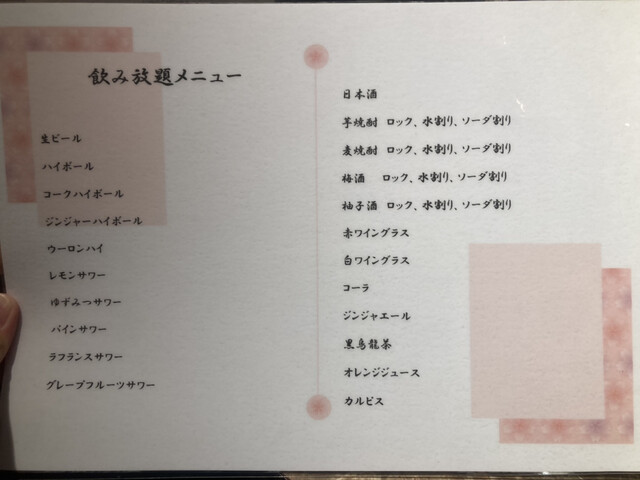 飲み放題メニュー
生ビール
ハイボール
コークハイボール
ジンジャーハイボール
ウーロンハイ
レモンサワー
ゆずみつサワー
パインサワー
ラフランスサワー
グレープフルーツサワー
日本酒
芋焼酎 ロック、水割り、ソーダ割り
麦焼酎 ロック、水割り、ソーダ割り
梅酒 ロック、水割り、ソーダ割り
柚子酒 ロック、水割り、ソーダ割り
赤ワイングラス
白ワイングラス
コーラ
ジンジャエール
黒烏龍茶
オレンジジュース
カルピス